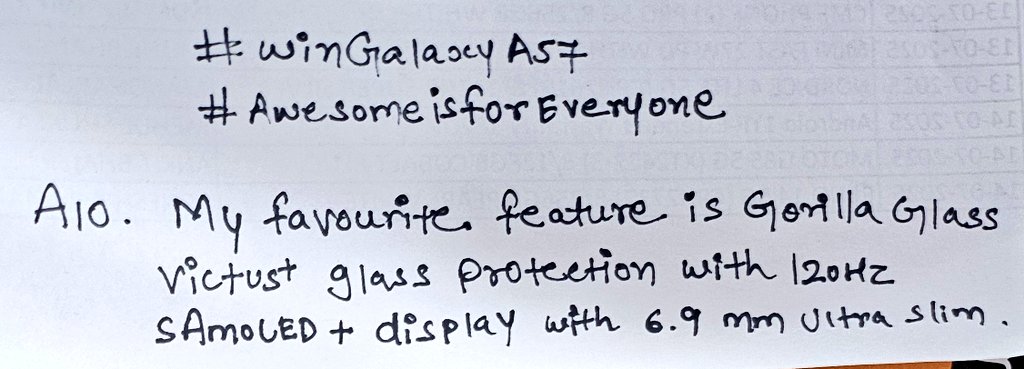 # WinGalaxy A57
# AwesomeisforEveryone
A10. My favourite feature is Gorilla Glass
Victus+ glass protection with 120Hz
SAMOLED + display with 6.9 mm Ultra slim.